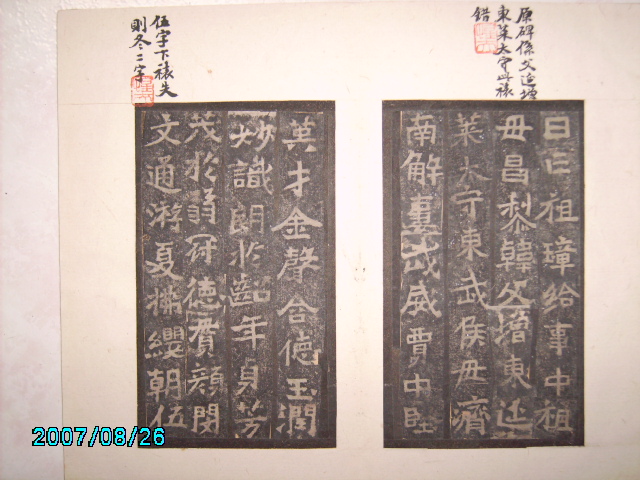 原碑係父延增
東萊太守此裱
錯
祖璋給事中祖
毋昌黎韓父增東延
萊太守東武侯毋濟
南解婁武威賈中堅
伍字下裱失
則冬二字
英才金聲含德玉潤
妙識朗於齠年身芳
茂於弱冠德賓顏閔
文通游夏拂纓朝伍
2007/08/26